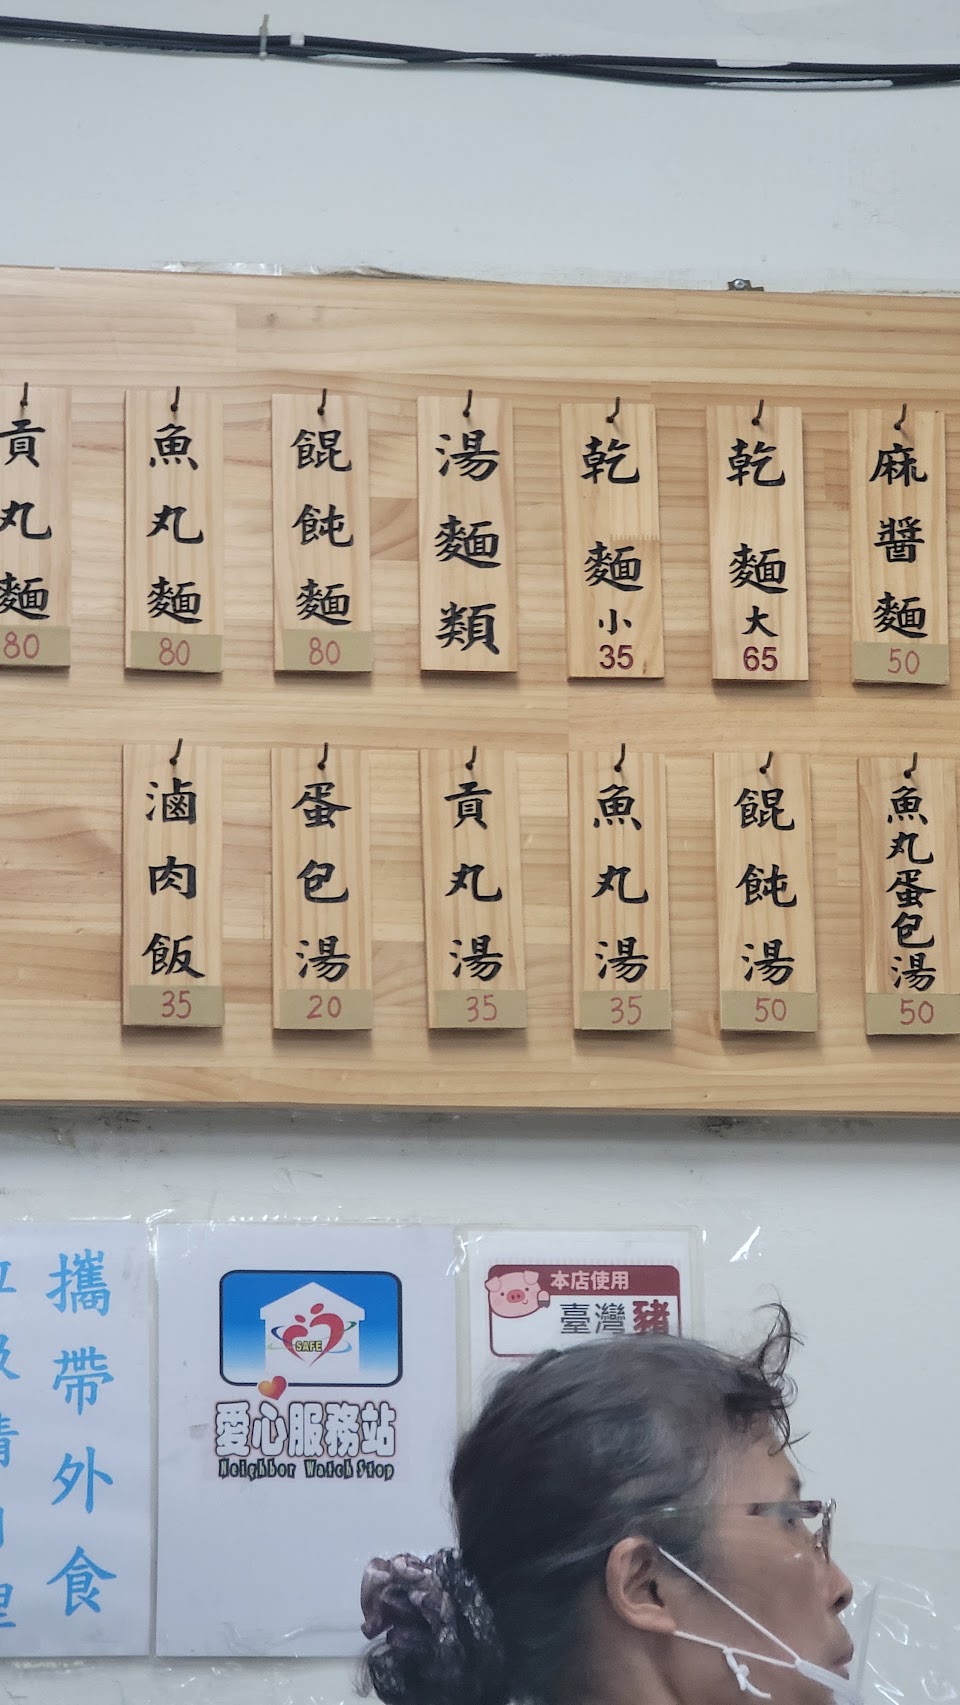 麻醬麵
50
乾麵大
65
乾麵小
35
湯麵類
餛飩麵
80
魚丸麵
80
貢丸麵
80
魚丸蛋包湯
50
餛飩湯
50
魚丸湯
35
貢丸湯
35
蛋包湯
20
滷肉飯
35
本店使用
臺灣豬
SAFE
愛心服務站
Neighbor Watch Stop
攜帶外食